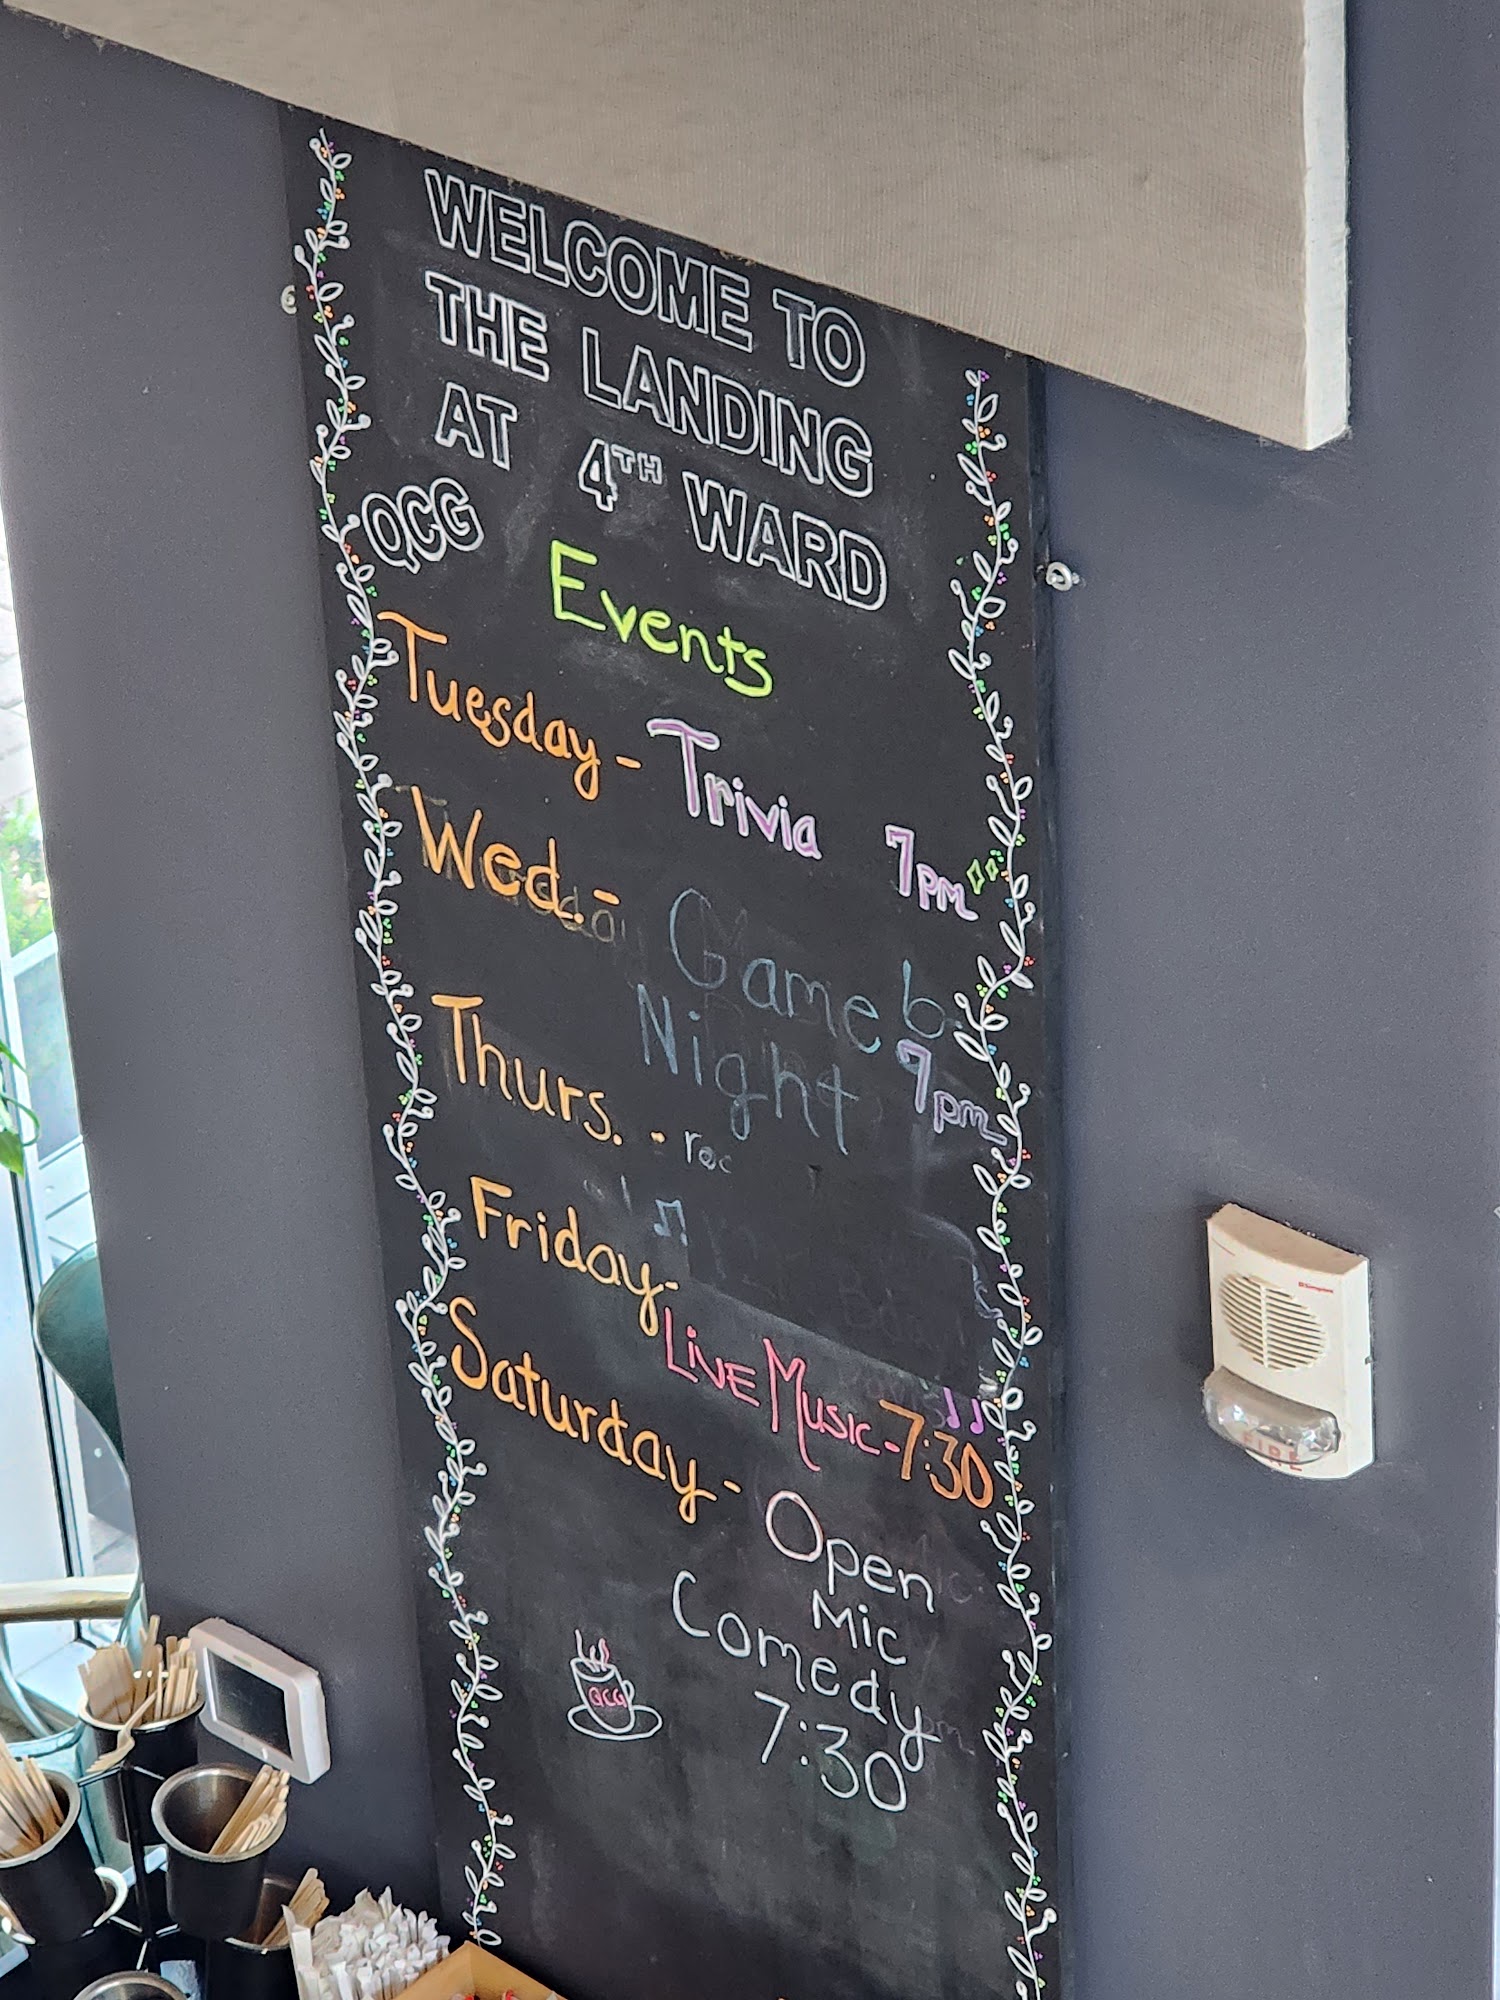 WELCOME TO
THE LANDING
AT 4TH WARD
QCG
Events
Tuesday - Trivia 7pm
Wed. - Game
Night 7pm
Thurs. -
Friday -
LIVE MUSIC - 7:30
Saturday - Open
Mic
Comedy
7:30
QCG
FIRE